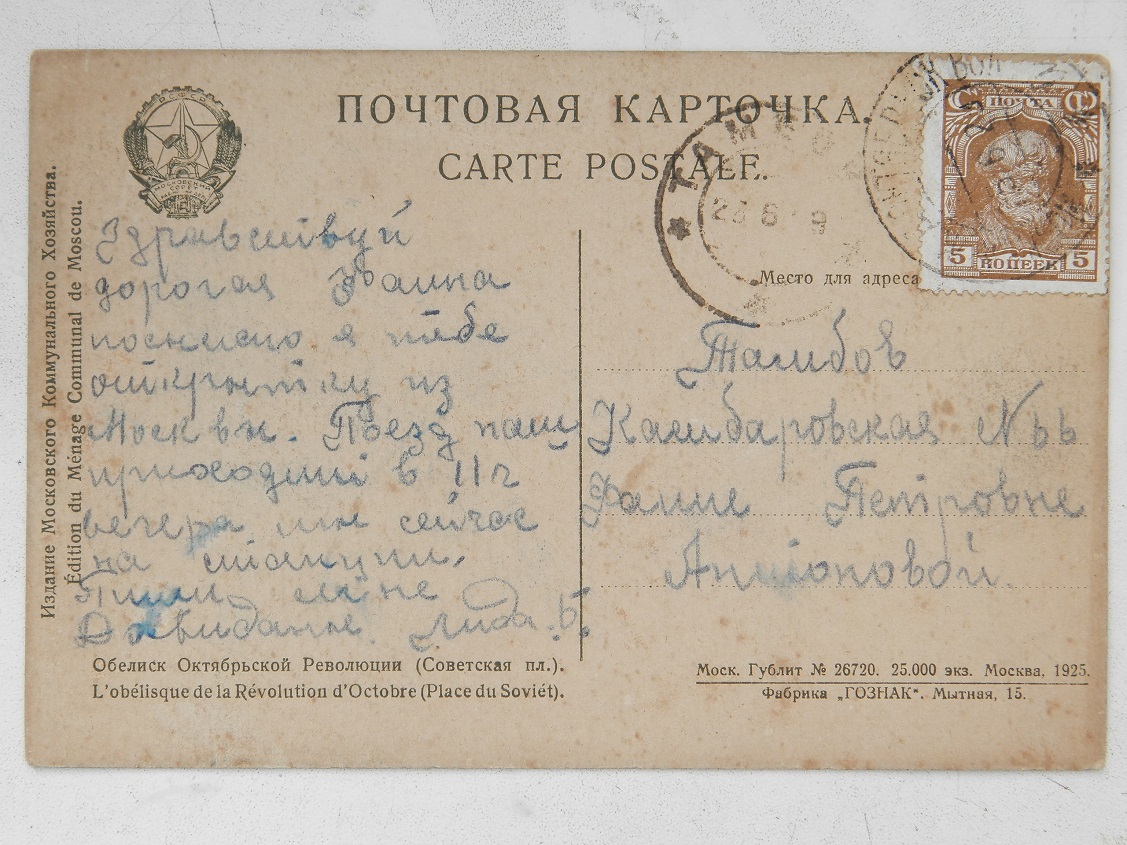 ПОЧТОВАЯ КАРТОЧКА.
CARTE POSTALE.
РСФСР
Издание Московского Коммунального Хозяйства.
Édition du Ménage Communal de Moscou.
ТАМБОВ
23 6 9
ПОЧТА
5 КОПЕЕК 5
Место для адреса
Здравствуй
дорогая Фаина
посылаю я тебе
открытку из
Москвы. Поезд наш
приходит в 11 г
вечера мы сейчас
на станции.
Пиши мне
Досвиданье. Лида. Б.
Тамбов
Камбаровская № 66
Фаине Петровне
Антоновой.
Обелиск Октябрьской Революции (Советская пл.).
L'obélisque de la Révolution d'Octobre (Place du Soviét).
Моск. Гублит № 26720. 25.000 экз. Москва, 1925.
Фабрика „ГОЗНАК“. Мытная, 15.